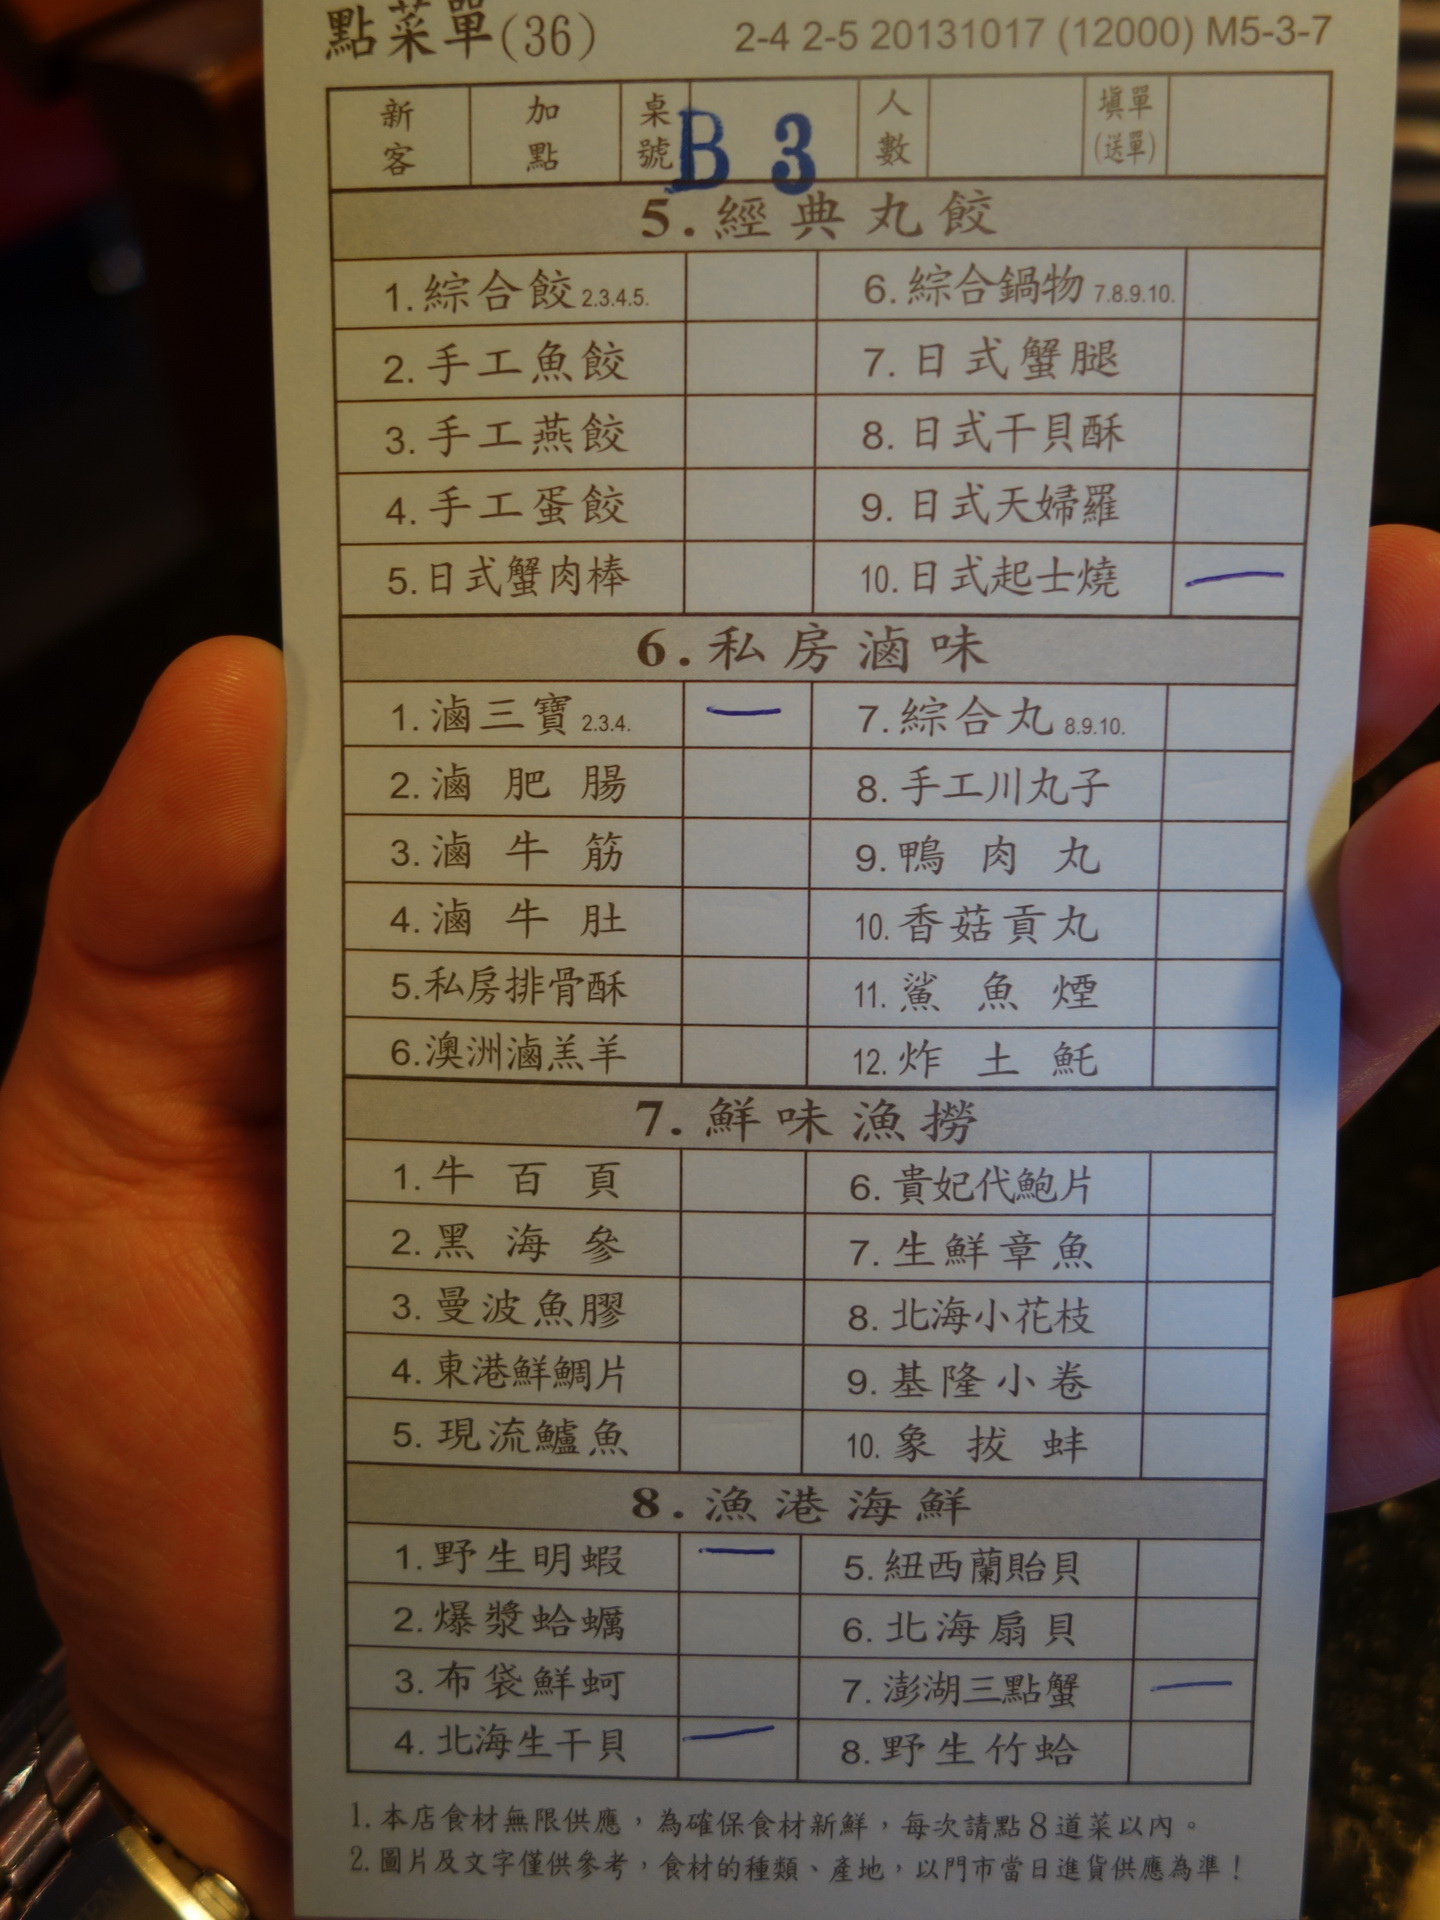 點菜單(36) 2-4 2-5 20131017 (12000) M5-3-7
新客 加點 桌號 B 3 人數 填單(送單)
5.經典丸餃
1.綜合餃2.3.4.5. 6.綜合鍋物7.8.9.10.
2.手工魚餃 7.日式蟹腿
3.手工燕餃 8.日式干貝酥
4.手工蛋餃 9.日式天婦羅
5.日式蟹肉棒 10.日式起士燒 一
6.私房滷味
1.滷三寶2.3.4. 一 7.綜合丸8.9.10.
2.滷肥腸 8.手工川丸子
3.滷牛筋 9.鴨肉丸
4.滷牛肚 10.香菇貢丸
5.私房排骨酥 11.鯊魚煙
6.澳洲滷羔羊 12.炸土魠
7.鮮味漁撈
1.牛百頁 6.貴妃代鮑片
2.黑海參 7.生鮮章魚
3.曼波魚膠 8.北海小花枝
4.東港鮮鯛片 9.基隆小卷
5.現流鱸魚 10.象拔蚌
8.漁港海鮮
1.野生明蝦 一 5.紐西蘭貽貝
2.爆漿蛤蠣 6.北海扇貝
3.布袋鮮蚵 7.澎湖三點蟹 一
4.北海生干貝 一 8.野生竹蛤
1.本店食材無限供應，為確保食材新鮮，每次請點8道菜以內。
2.圖片及文字僅供參考，食材的種類、產地，以門市當日進貨供應為準！